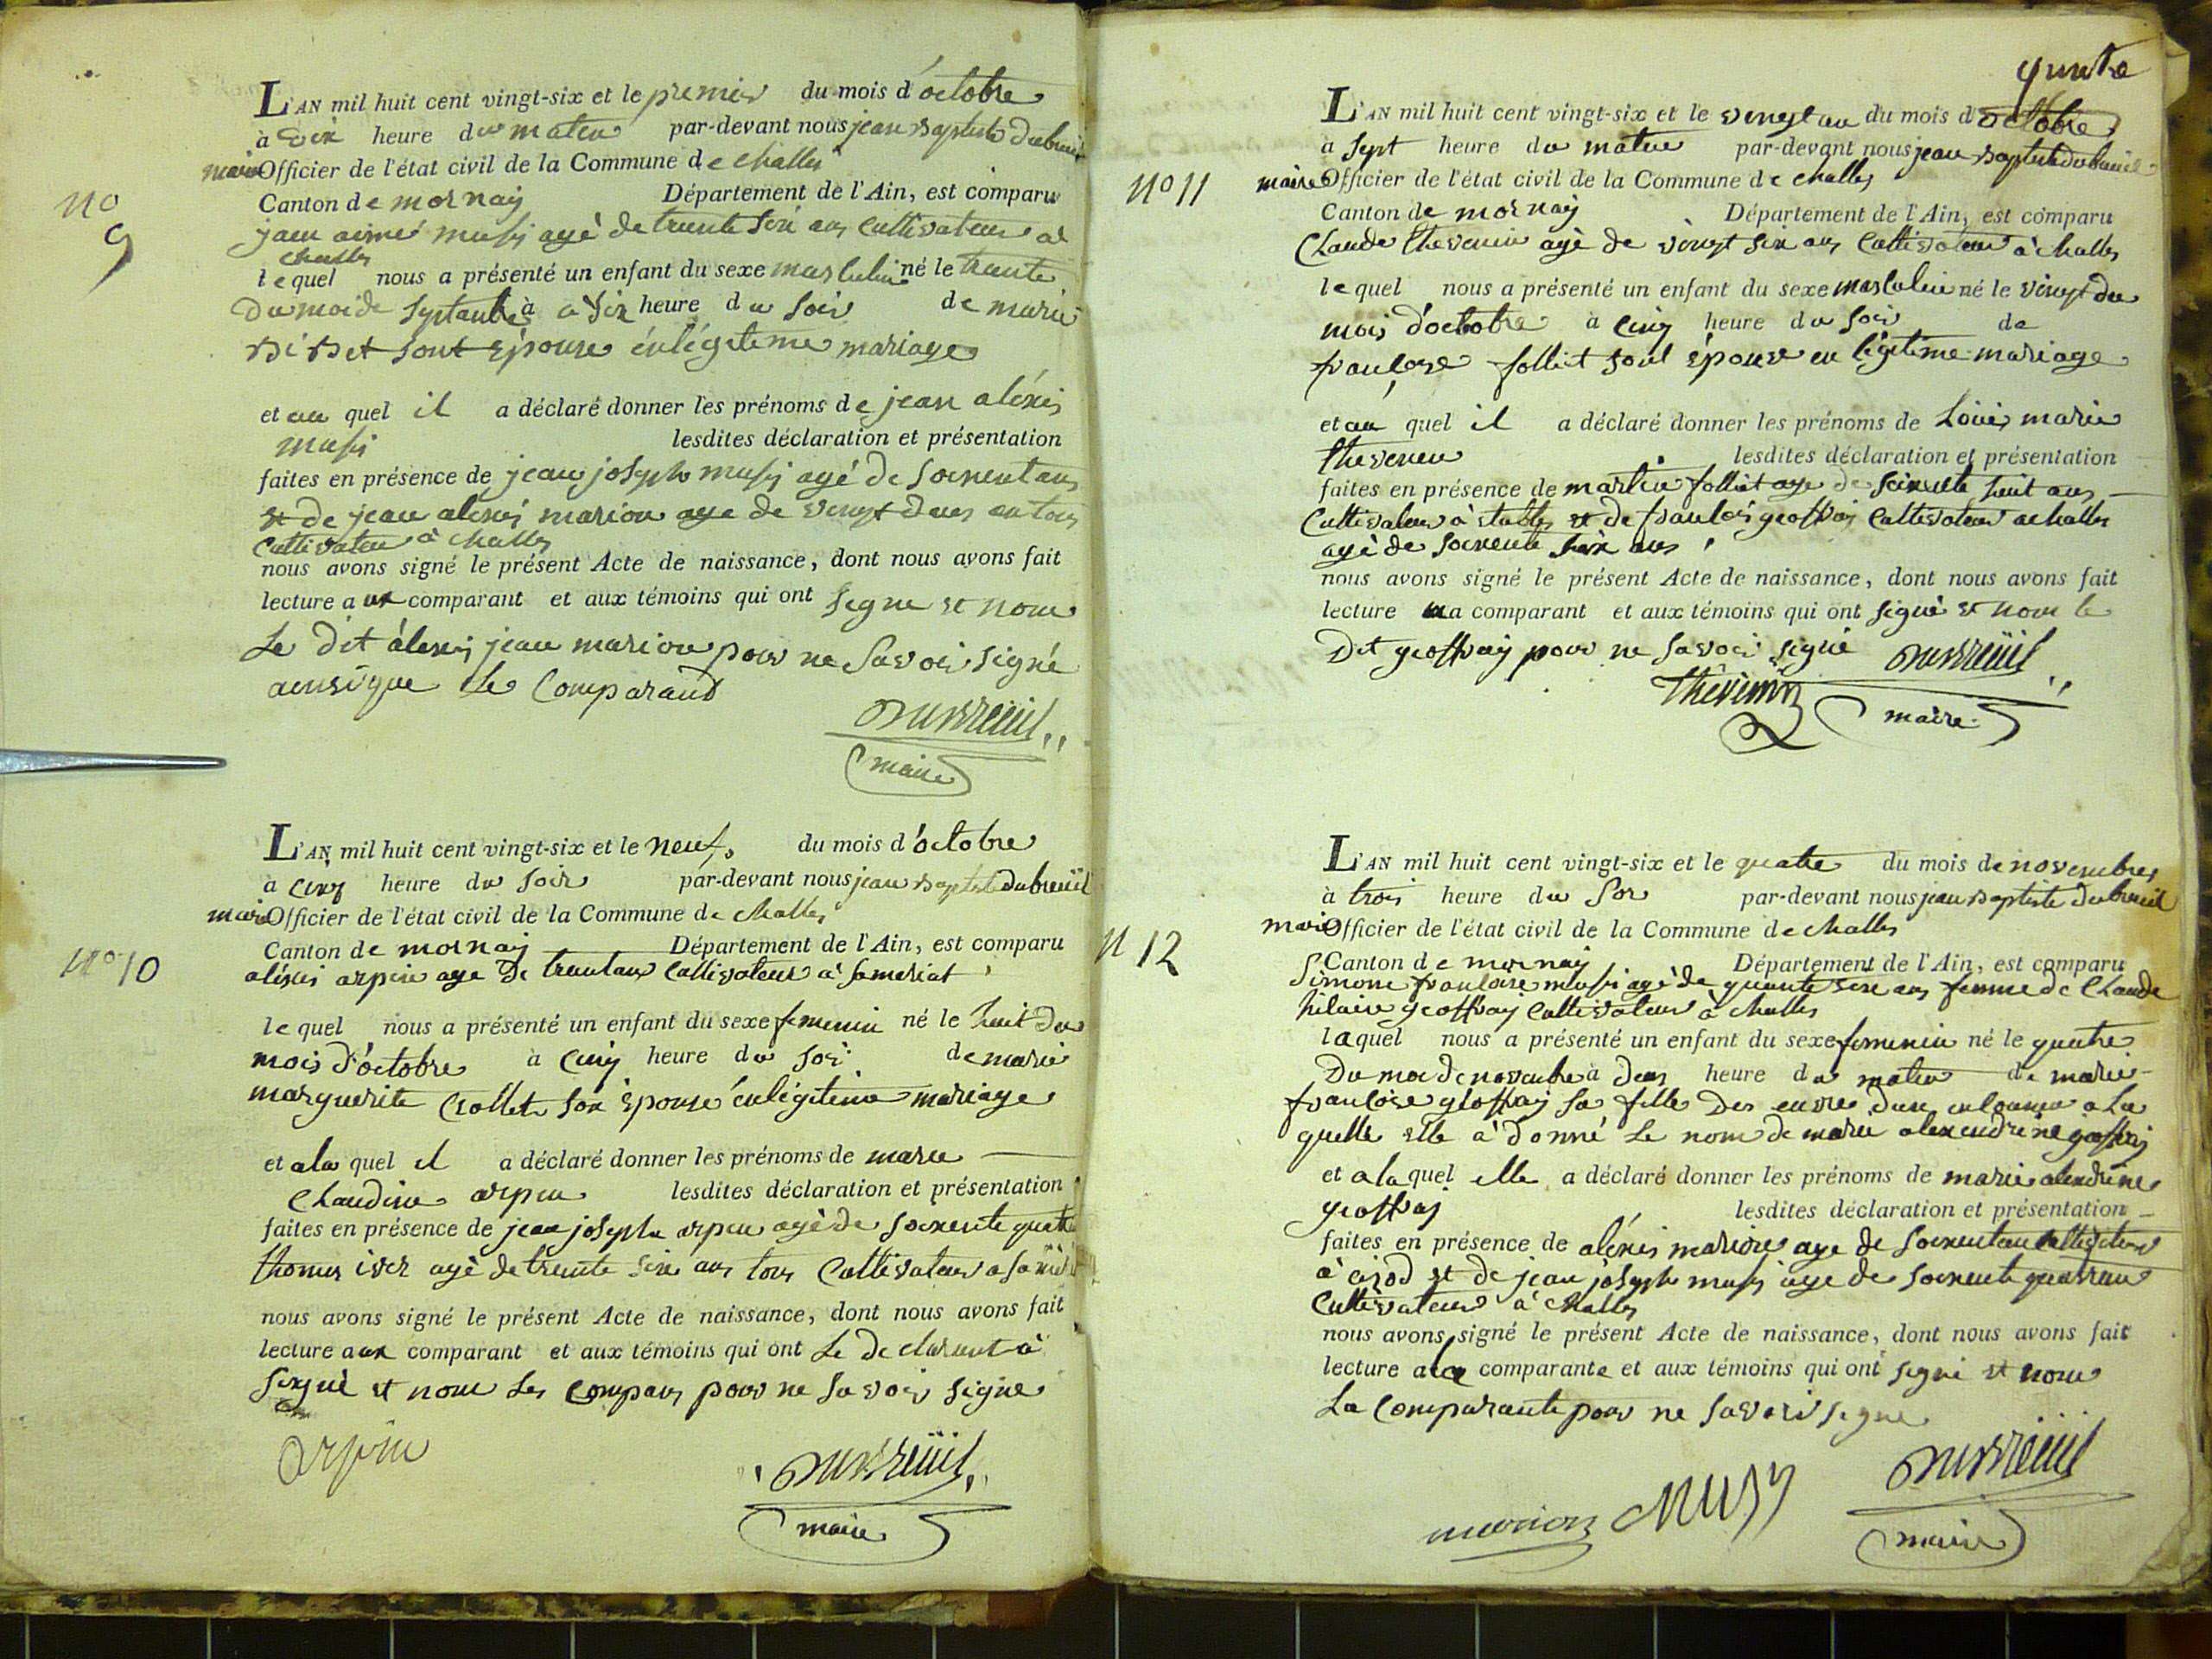 N° 9
L'AN mil huit cent vingt-six et le premier du mois d'octobre
à dix heure du matin par-devant nous jean baptiste Dubreuil
maire Officier de l'état civil de la Commune de challes
Canton de mornay Département de l'Ain, est comparu
jean aimé musy agé de trente six ans cultivateur à
challes
lequel nous a présenté un enfant du sexe masculin né le trante
Du moi de septanbre à a six heure du soir de marie
sont épouse én légetime mariage
et au quel il a déclaré donner les prénoms de jean aléxis
musy lesdites déclaration et présentation
faites en présence de jean joseph musy agé de soixent ans
et de jean alexis marion age de vingt deux an tous
cultivateur à challes
nous avons signé le présent Acte de naissance, dont nous avons fait
lecture a ux comparant et aux témoins qui ont segne et nom
Le dit aléxis jean marion pour ne savoir signé
ainsi que le Comparand
Dubreüil
maire
N° 10
L'AN mil huit cent vingt-six et le neuf du mois d'octobre
à cinq heure du soir par-devant nous jean baptiste dubreüil
maire Officier de l'état civil de la Commune de challes
Canton de mornay Département de l'Ain, est comparu
aléxis arpin age de trentans cultivateur à Sameriat
lequel nous a présenté un enfant du sexe femenin né le huit du
mois d'octobre à cinq heure du soi de marie
marguerite Collet son épouse én légiteme mariage
et a la quel il a déclaré donner les prénoms de marie
Claudine arpin lesdites déclaration et présentation
faites en présence de jean joseph arpin agé de soixente quatre
thomas agé de trente six ans tous cultivateur a
nous avons signé le présent Acte de naissance, dont nous avons fait
lecture aux comparant et aux témoins qui ont Le declarant à
signé et nom les compars pour ne savoir signe
arpin
Dubreüil
maire
quatre
N° 11
L'AN mil huit cent vingt-six et le vingt un du mois d'octobre
à sept heure du matin par-devant nous jean baptiste dubreuil
maire Officier de l'état civil de la Commune de challes
Canton de mornay Département de l'Ain, est comparu
Claude thevenin agé de vingt six ans cultivateur à challes
lequel nous a présenté un enfant du sexe masculin né le vingt du
mois d'octobre à cinq heure du soir de
françoise folliet sont épouse en légitime mariage
et au quel il a déclaré donner les prénoms de Louis marie
thevenin lesdites déclaration et présentation
faites en présence de martin folliet age de soixente huit ans
cultivateur à et de françois geoffray cultivateur a challes
agé de soixente ans
nous avons signé le présent Acte de naissance, dont nous avons fait
lecture au comparant et aux témoins qui ont signé et nom le
Dit geoffray pour ne savoir signé
Dubreüil
Thevenin
maire
N 12
L'AN mil huit cent vingt-six et le quatre du mois de novembres
à trois heure du sor par-devant nous jean baptiste dubreuil
maire Officier de l'état civil de la Commune de challes
Canton de mornay Département de l'Ain, est comparu
Simone françoise musy agé de quante six ans femme de Claude
hilaire geoffray cultivateur à challes
laquel nous a présenté un enfant du sexe femenin né le quatre
Du moi de novenbre à deux heure du matin de marie
françoise geoffray sa fille a La
quelle elle à donné Le nom de marie alexendrine geoffray
et a la quel elle a déclaré donner les prénoms de marie alexdrine
geoffray lesdites déclaration et présentation
faites en présence de aléxis marion age de soixentan cultivateur
à cizod et de jean joseph musy age de soixente
cultivateur à challes
nous avons signé le présent Acte de naissance, dont nous avons fait
lecture a la comparante et aux témoins qui ont segné et nom
La comparante pour ne savoir segne
Dubreüil
marion Musy
maire